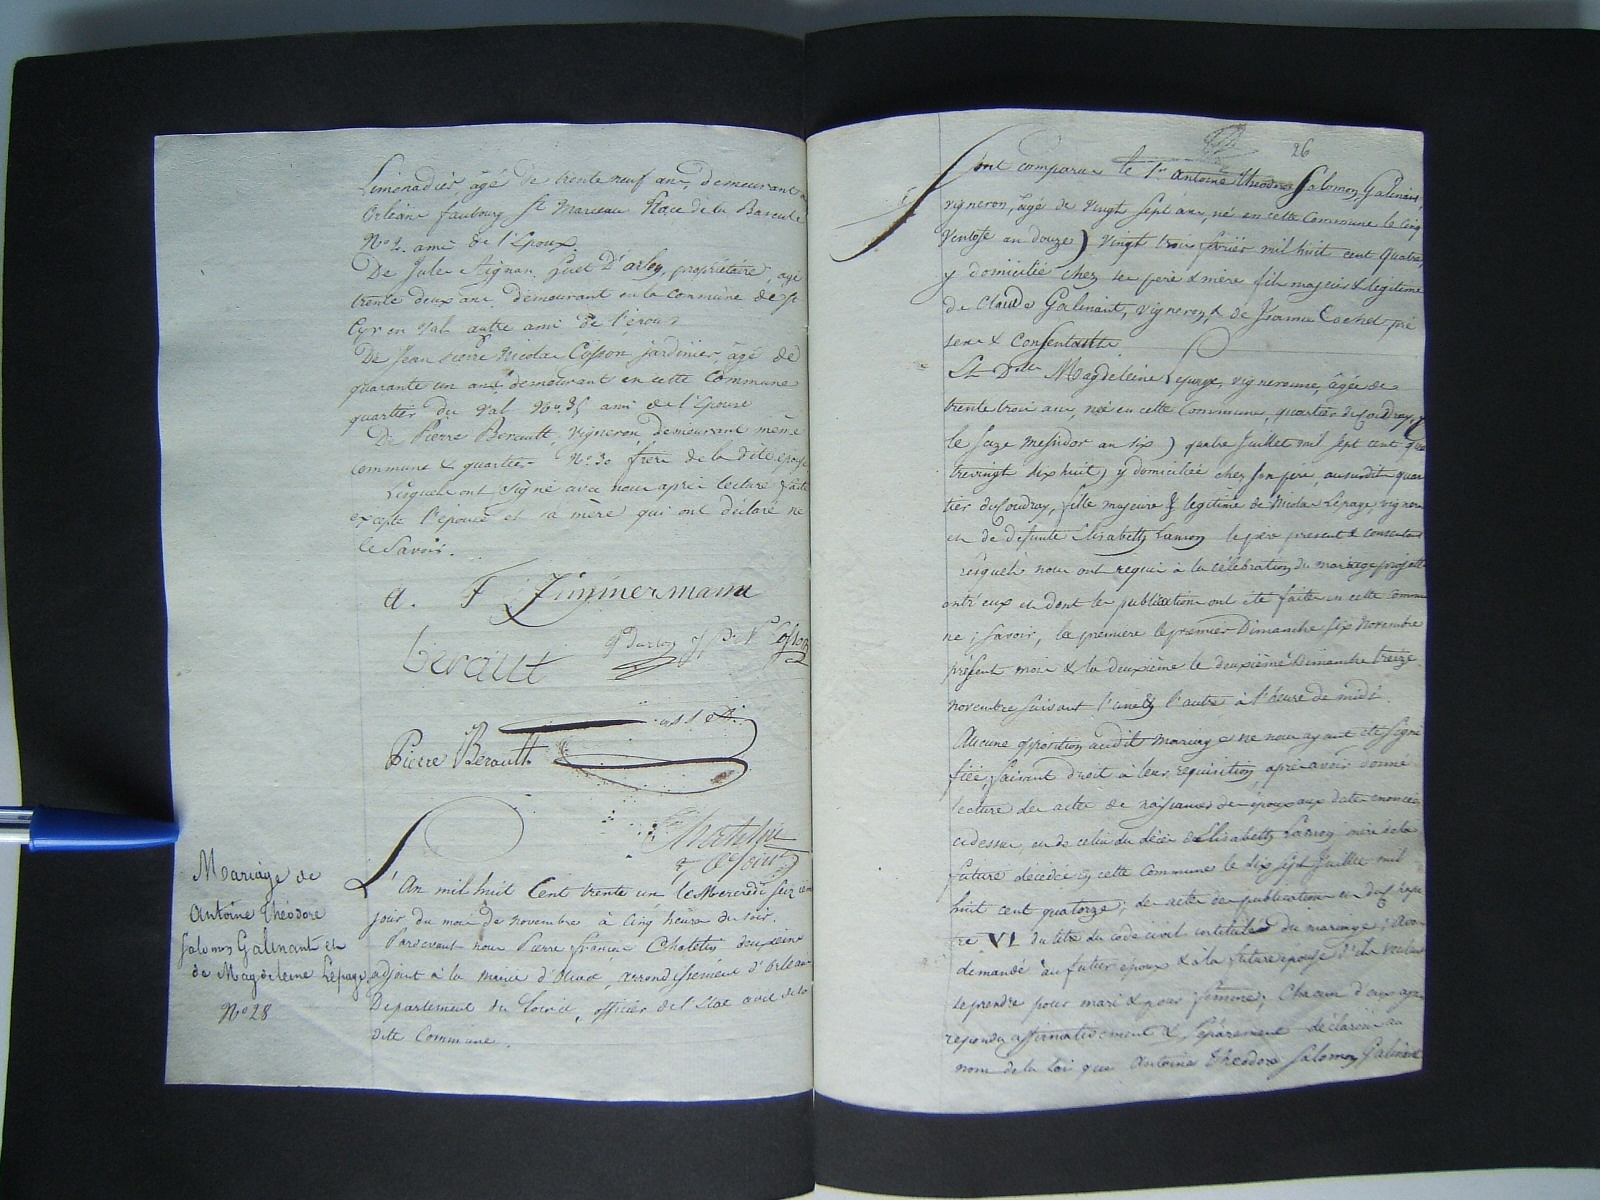 Limonadier âgé de trente neuf ans, demeurant à
Orléans faubourg St Marceau Place de la Bascule
No 2. ami de l'Epoux
De Jules Aignan Huet D'arlon, propriétaire, agé
trente deux ans, demeurant en la commune de St
Cyr en Val autre ami de l'époux
De Jean pierre Nicolas Cosson jardinier, âgé de
quarante un ans demeurant en cette Commune
quartier du Val No 35 ami de l'Epouse
De Pierre Berault, Vigneron, demeurant même
commune & quartier No 30 frere de la dite epouse
Lesquels ont signé avec nous après lecture faite
excepté l'épouse et sa mère qui ont déclaré ne
le Savoir.
a. F Zimmermann
beraut
Pierre Berault
adjoint
L'An mil huit Cent trente un le Mercredi seizieme
jour du mois de novembre à cinq heures du soir.
Pardevant nous Pierre françois deuxieme
adjoint à la mairie d'Olivet, arrondissement d'Orléans
Departement du Loiret, officier de l'Etat civil de la
dite Commune.
Mariage de
Antoine Théodore
Salomon Galinant et
de Magdeleine Lepage
No 28
26
Sont comparus le Sr Antoine Théodore Salomon Galinant,
vigneron, âgé de Vingt sept ans, né en cette Commune le cinq
Ventose an douze) Vingt trois fevrier mil huit cent quatre,
y domicilié chez ses père & mère fils majeur & légitime
de Claude Galinant, Vigneron, & de Jeanne Cochet pré
sens & Consentants
Et Dlle Magdeleine Lepage, vigneronne, âgée de
trente trois ans, née en cette Commune, quartier du Coudray,
le seize Messidor an six) quatre Juillet mil sept cent qua
trevingt dix huit) y domiciliée chez son père, au susdit quar
tier du Coudray, fille majeure & legitime de Nicolas Lepage, vigneron
et de defunte Elisabeth Lanson le père present & consentant
Lesquels nous ont requis à la célébration du mariage projetté
entr'eux et dont les publications ont été faites en cette commu
ne; savoir, la première le premier Dimanche six Novembre
présent mois & la deuxième le deuxième Dimanche treize
novembre suivant l'une & l'autre à l'heure de midi
Aucune opposition audit mariage ne nous ayant été signi
fiée, faisant droit à leur requisition, après avoir donné
lecture des actes de naissances des époux aux dates énoncées
cidessus, de celui du décès de Elisabeth Lanson mère de la
future décédée en cette Commune le dix sept Juillet mil
huit cent quatorze; des actes de publication et du chapi
tre VI du titre du code civil intitulé du mariage; avons
demandé au futur époux & à la future épouse s'ils veulent
se prendre pour mari & pour femme; Chacun d'eux ayant
repondu affirmativement & séparément déclarons au
nom de la loi que Antoine Théodore Salomon Galinant